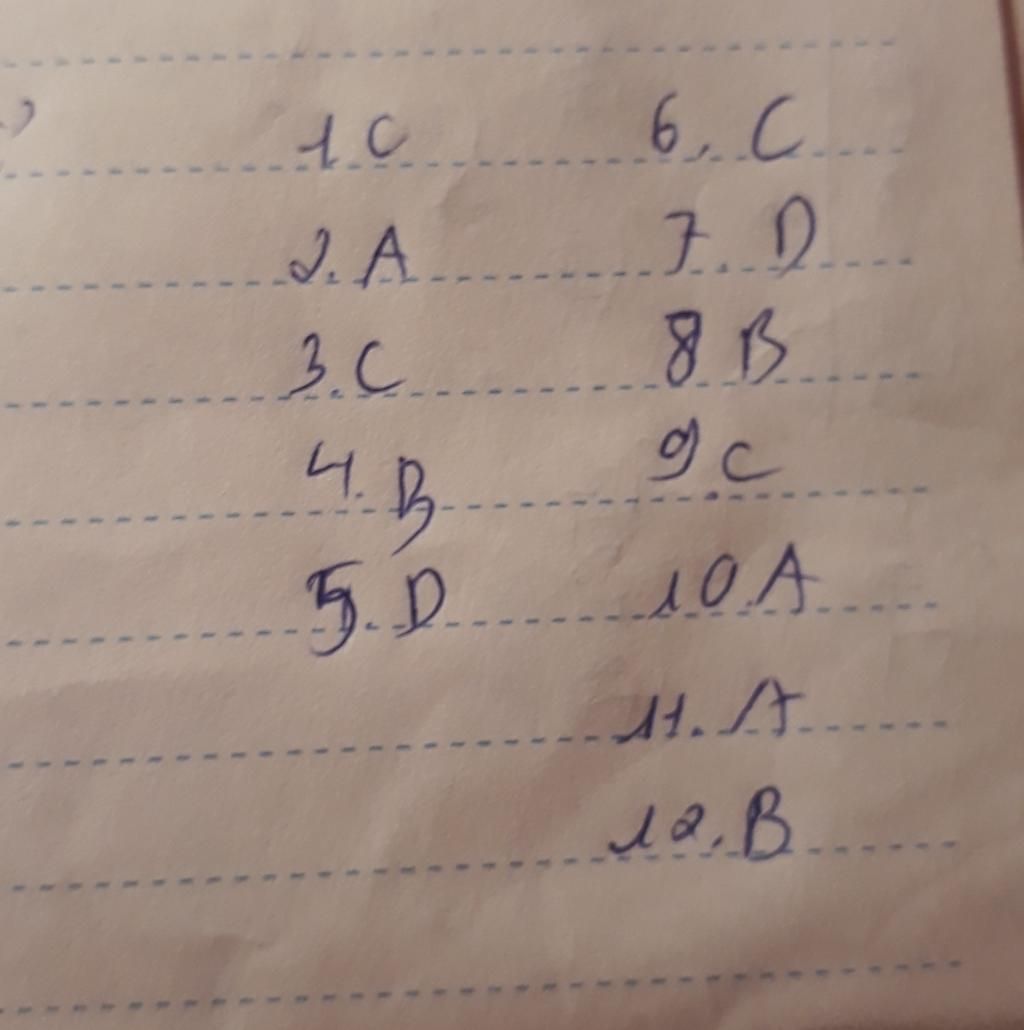 1 C
2. A
3. C
4. B
5. D
6. C
7. D
8 B
9. C
10. A
11. A
12. B